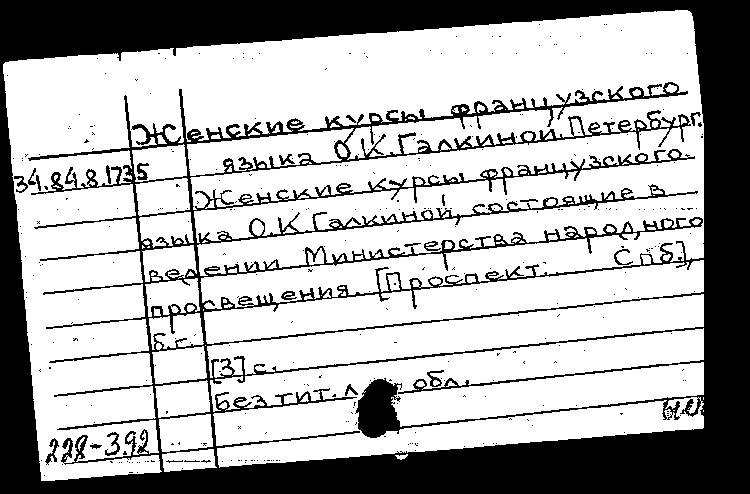 Женские курсы французского
языка О.К.Галкиной. Петербург.
34.84.8.1735
Женские курсы французского
языка О.К.Галкиной, состоящие в
ведении Министерства народного
просвещения. [Проспект. Спб.],
б.г.
[3] с.
Без тит. л. обл.
228-392